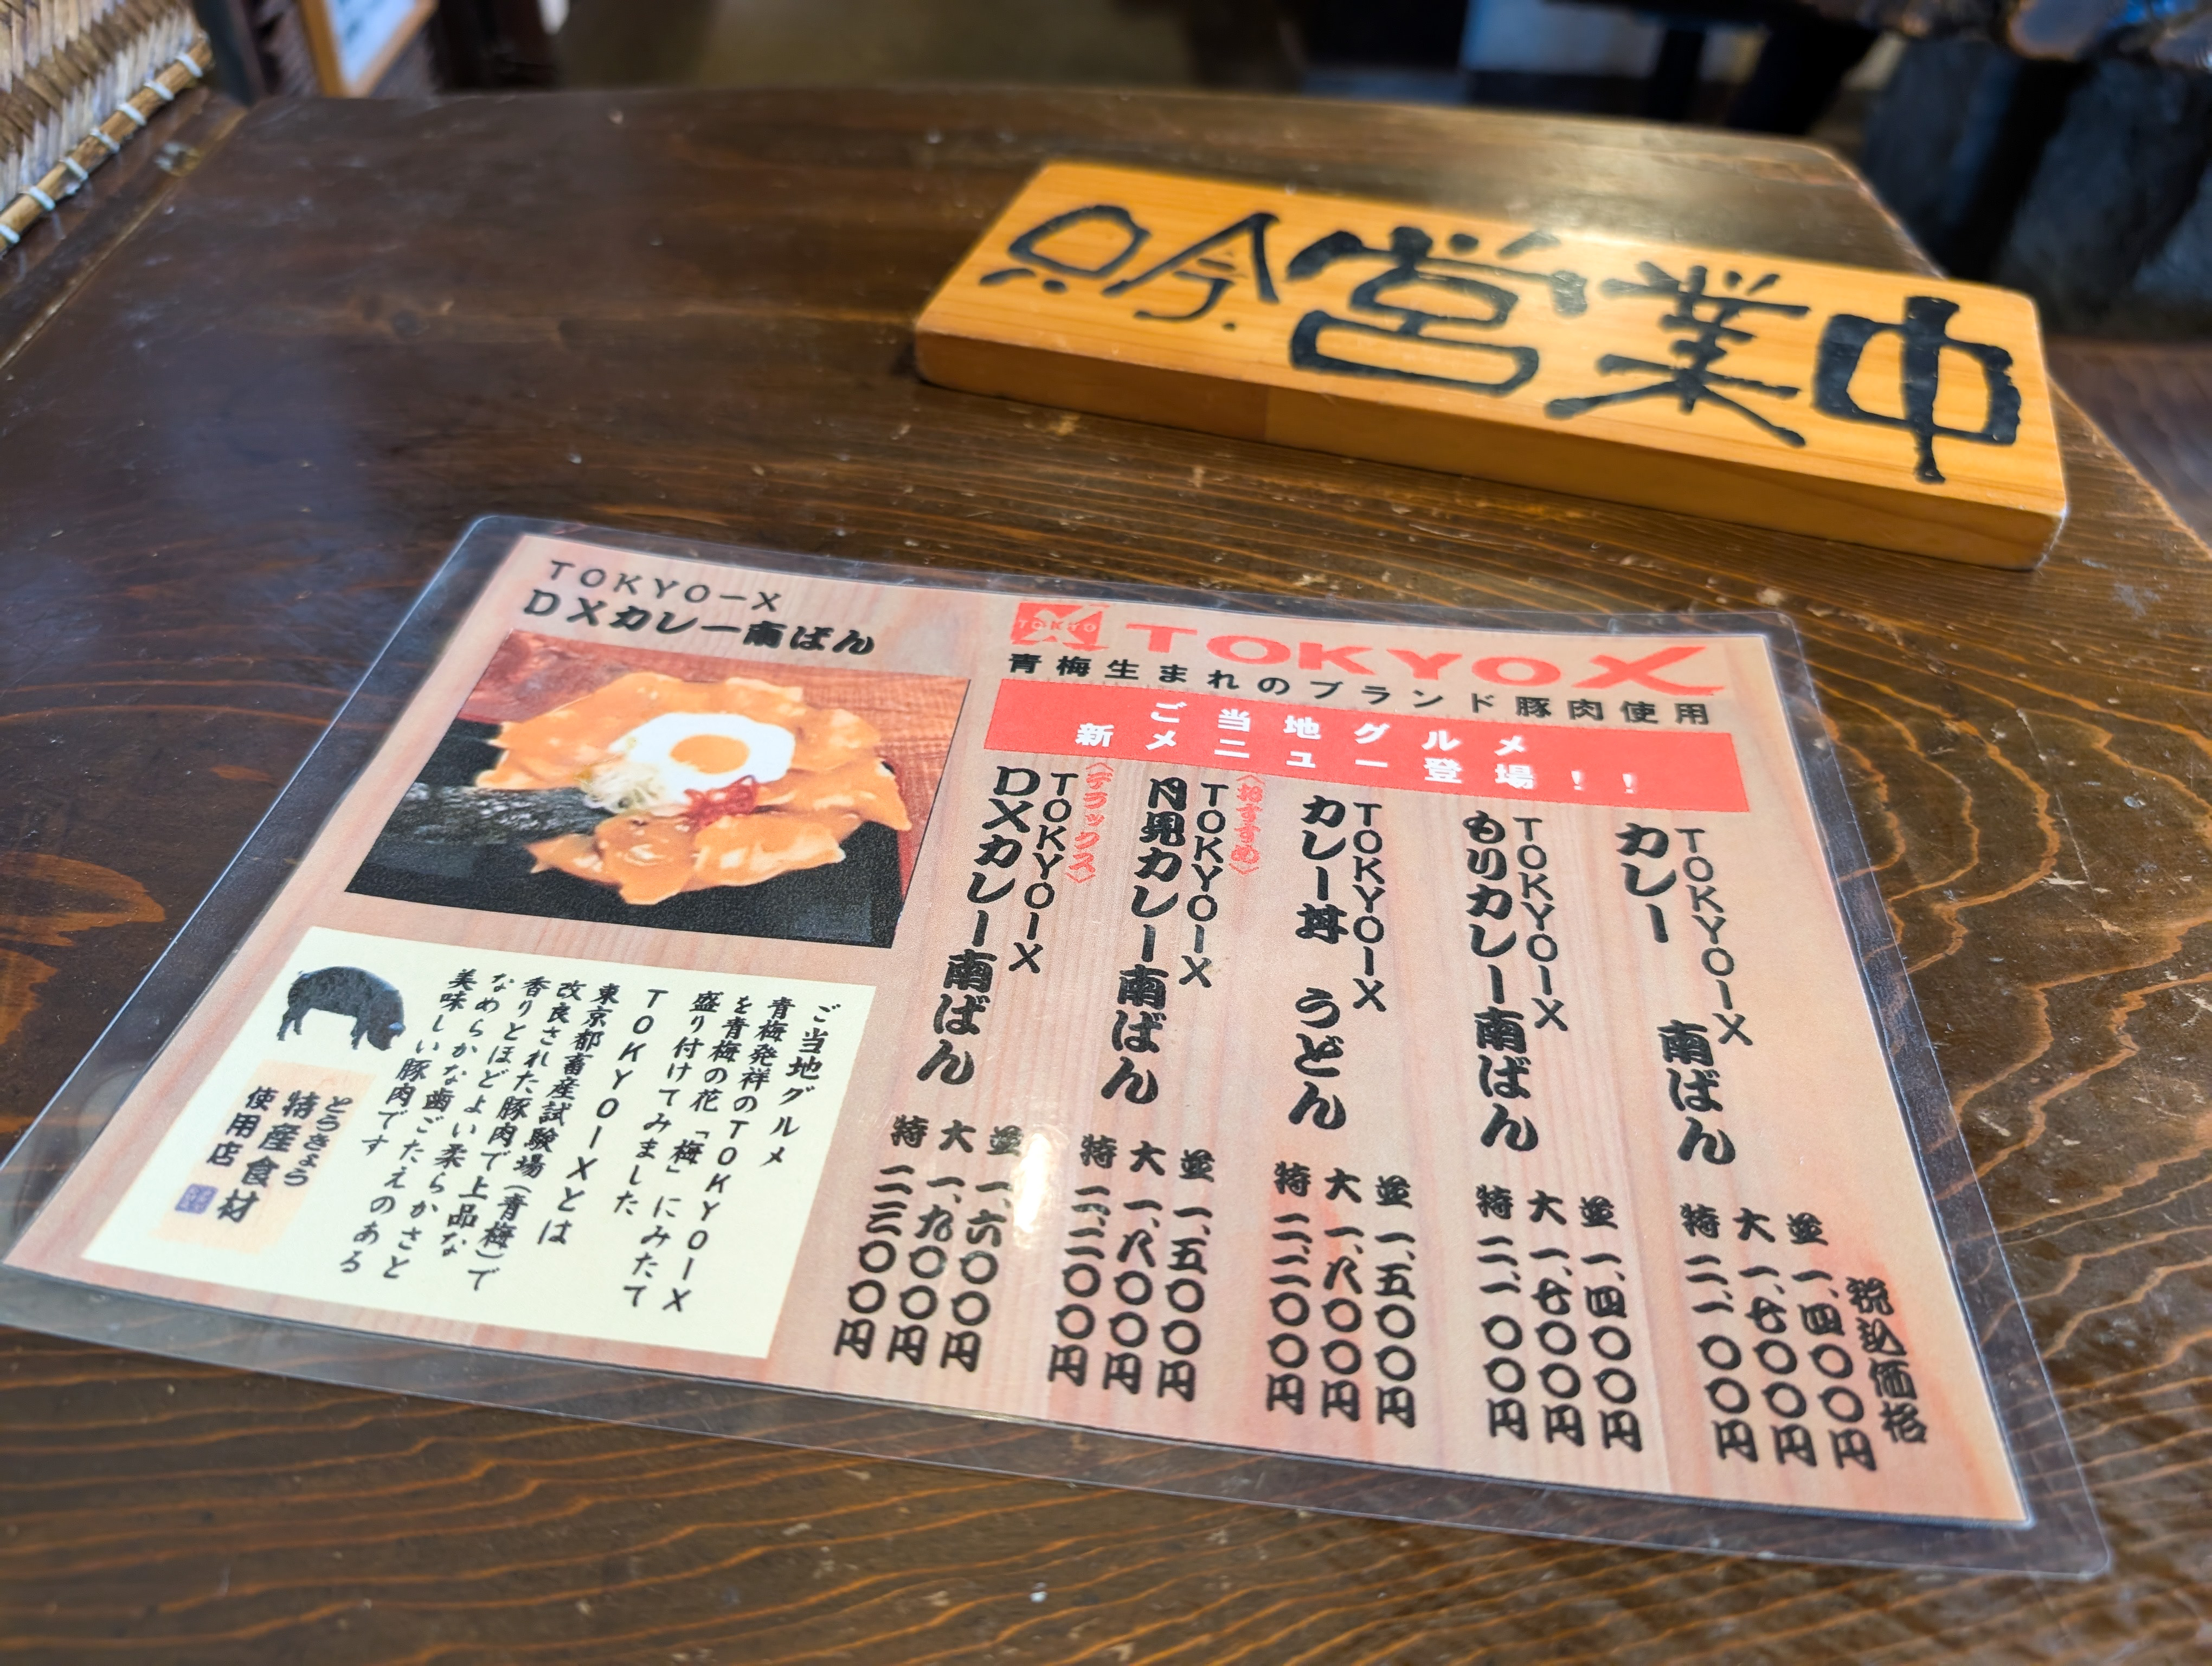 只今営業中
TOKYO－X
DXカレー南ばん
TOKYO
TOKYO X
青梅生まれのブランド豚肉使用
ご当地グルメ
新メニュー登場！！
TOKYO－X
カレー　南ばん
並　一、四〇〇円
大　一、七〇〇円
特　二、一〇〇円
税込価格
TOKYO－X
もりカレー南ばん
並　一、四〇〇円
大　一、七〇〇円
特　二、一〇〇円
TOKYO－X
カレー丼　うどん
並　一、五〇〇円
大　一、八〇〇円
特　二、二〇〇円
〈おすすめ〉
TOKYO－X
月見カレー南ばん
並　一、五〇〇円
大　一、八〇〇円
特　二、二〇〇円
〈デラックス〉
TOKYO－X
DXカレー南ばん
並　一、六〇〇円
大　一、九〇〇円
特　二、三〇〇円
ご当地グルメ
青梅発祥のTOKYO－X
を青梅の花「梅」にみたて
盛り付けてみました
TOKYO－Xとは
東京都畜産試験場（青梅）で
改良された豚肉で上品な
香りとほどよい柔らかさと
なめらかな歯ごたえのある
美味しい豚肉です
とうきょう
特産食材
使用店